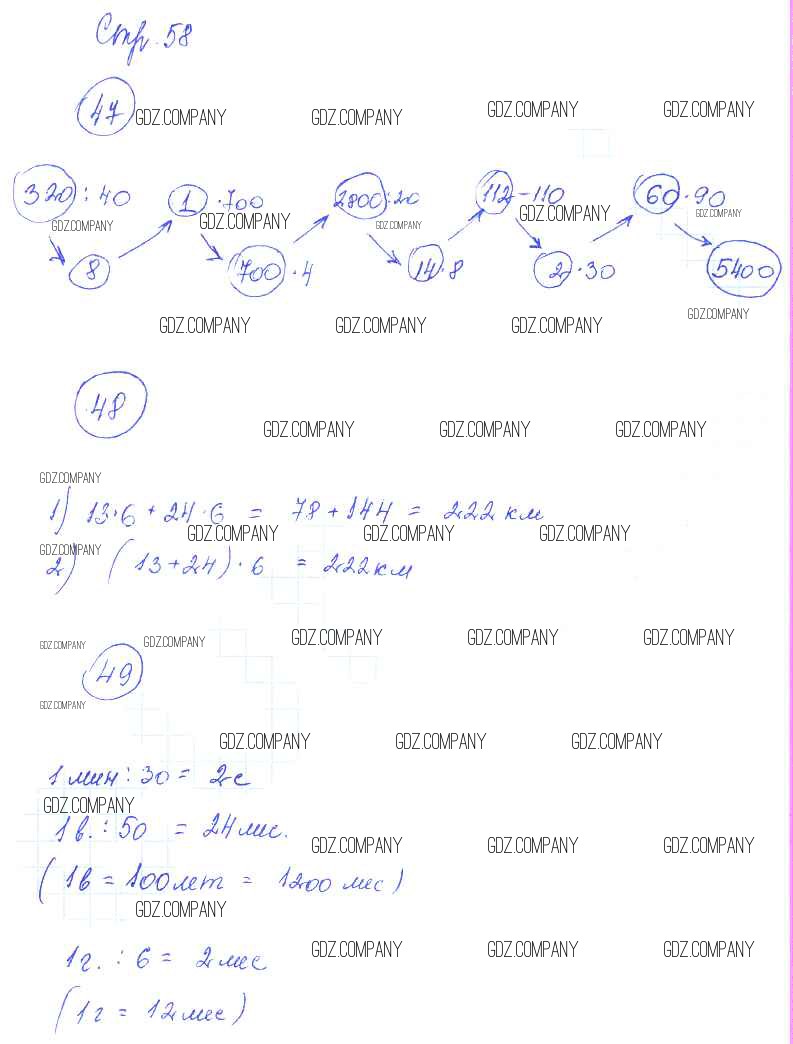 Стр. 58
47
GDZ.COMPANY GDZ.COMPANY GDZ.COMPANY GDZ.COMPANY
320 : 40 1 · 700 2800 : 20 112 - 110 60 · 90
GDZ.COMPANY GDZ.COMPANY GDZ.COMPANY GDZ.COMPANY GDZ.COMPANY
8 700 · 4 14 · 8 2 · 30 5400
GDZ.COMPANY GDZ.COMPANY GDZ.COMPANY GDZ.COMPANY
48
GDZ.COMPANY GDZ.COMPANY GDZ.COMPANY
GDZ.COMPANY
1) 13 · 6 + 24 · 6 = 78 + 144 = 222 км
GDZ.COMPANY GDZ.COMPANY GDZ.COMPANY
GDZ.COMPANY
2) (13 + 24) · 6 = 222 км
GDZ.COMPANY GDZ.COMPANY GDZ.COMPANY GDZ.COMPANY GDZ.COMPANY
49
GDZ.COMPANY
GDZ.COMPANY GDZ.COMPANY GDZ.COMPANY
1 мин : 30 = 2 с
GDZ.COMPANY
1 в. : 50 = 24 мес.
GDZ.COMPANY GDZ.COMPANY GDZ.COMPANY
(1 в = 100 лет = 1200 мес)
GDZ.COMPANY
1 г. : 6 = 2 мес
GDZ.COMPANY GDZ.COMPANY GDZ.COMPANY
(1 г = 12 мес)